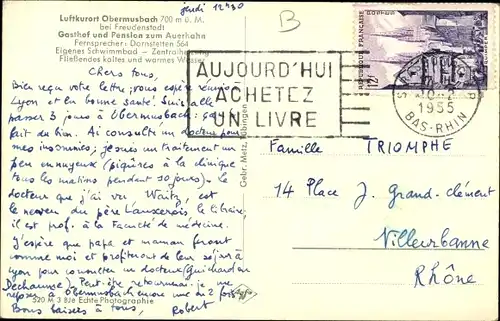 jeudi 12h30
Luftkurort Obermusbach 700 m ü. M.
bei Freudenstadt
Gasthof und Pension zum Auerhahn
Fernsprecher: Dornstetten 564
Eigenes Schwimmbad - Zentralheizung
Fließendes kaltes und warmes Wasser
Chers tous,
Bien reçu votre lettre; vous espère réunis à
Lyon et en bonne santé. Suis allé
passer 3 jours à Obermusbach: ça
fait du bien. Ai consulté un docteur pour
mes insomnies; je suis un traitement un
peu ennuyeux (piqûres à la clinique
tous les matins pendant 10 jours). Le
docteur que j'ai vu Waitz, est
le neveu du père Lauxerois, le libraire,
il est prof. à la Faculté de médecine.
J'espère que papa et maman feront
comme moi et profiteront de leur séjour à
Lyon pour consulter un docteur (Guichard ou
Dechaume). Peut-être retournerai-je me
reposer à Obermusbach encore une ou 2 fois.
Bons baisers à tous, Robert
520 M 3 8/8 Echte Photographie
Gebr. Metz, Tübingen
B
REPUBLIQUE FRANÇAISE
POSTES
12F
AUJOURD'HUI
ACHETEZ
UN LIVRE
1955
BAS-RHIN
Famille TRIOMPHE
14 Place J. Grand-clément
Villeurbanne
Rhône